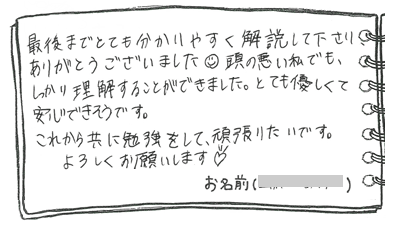 最後までとても分かりやすく解説して下さり、
ありがとうございました☺ 頭の悪い私でも、
しっかり理解することができました。とても優しくて
安心できそうです。
これから共に勉強をして、頑張りたいです。
よろしくお願いします♡
お名前( )